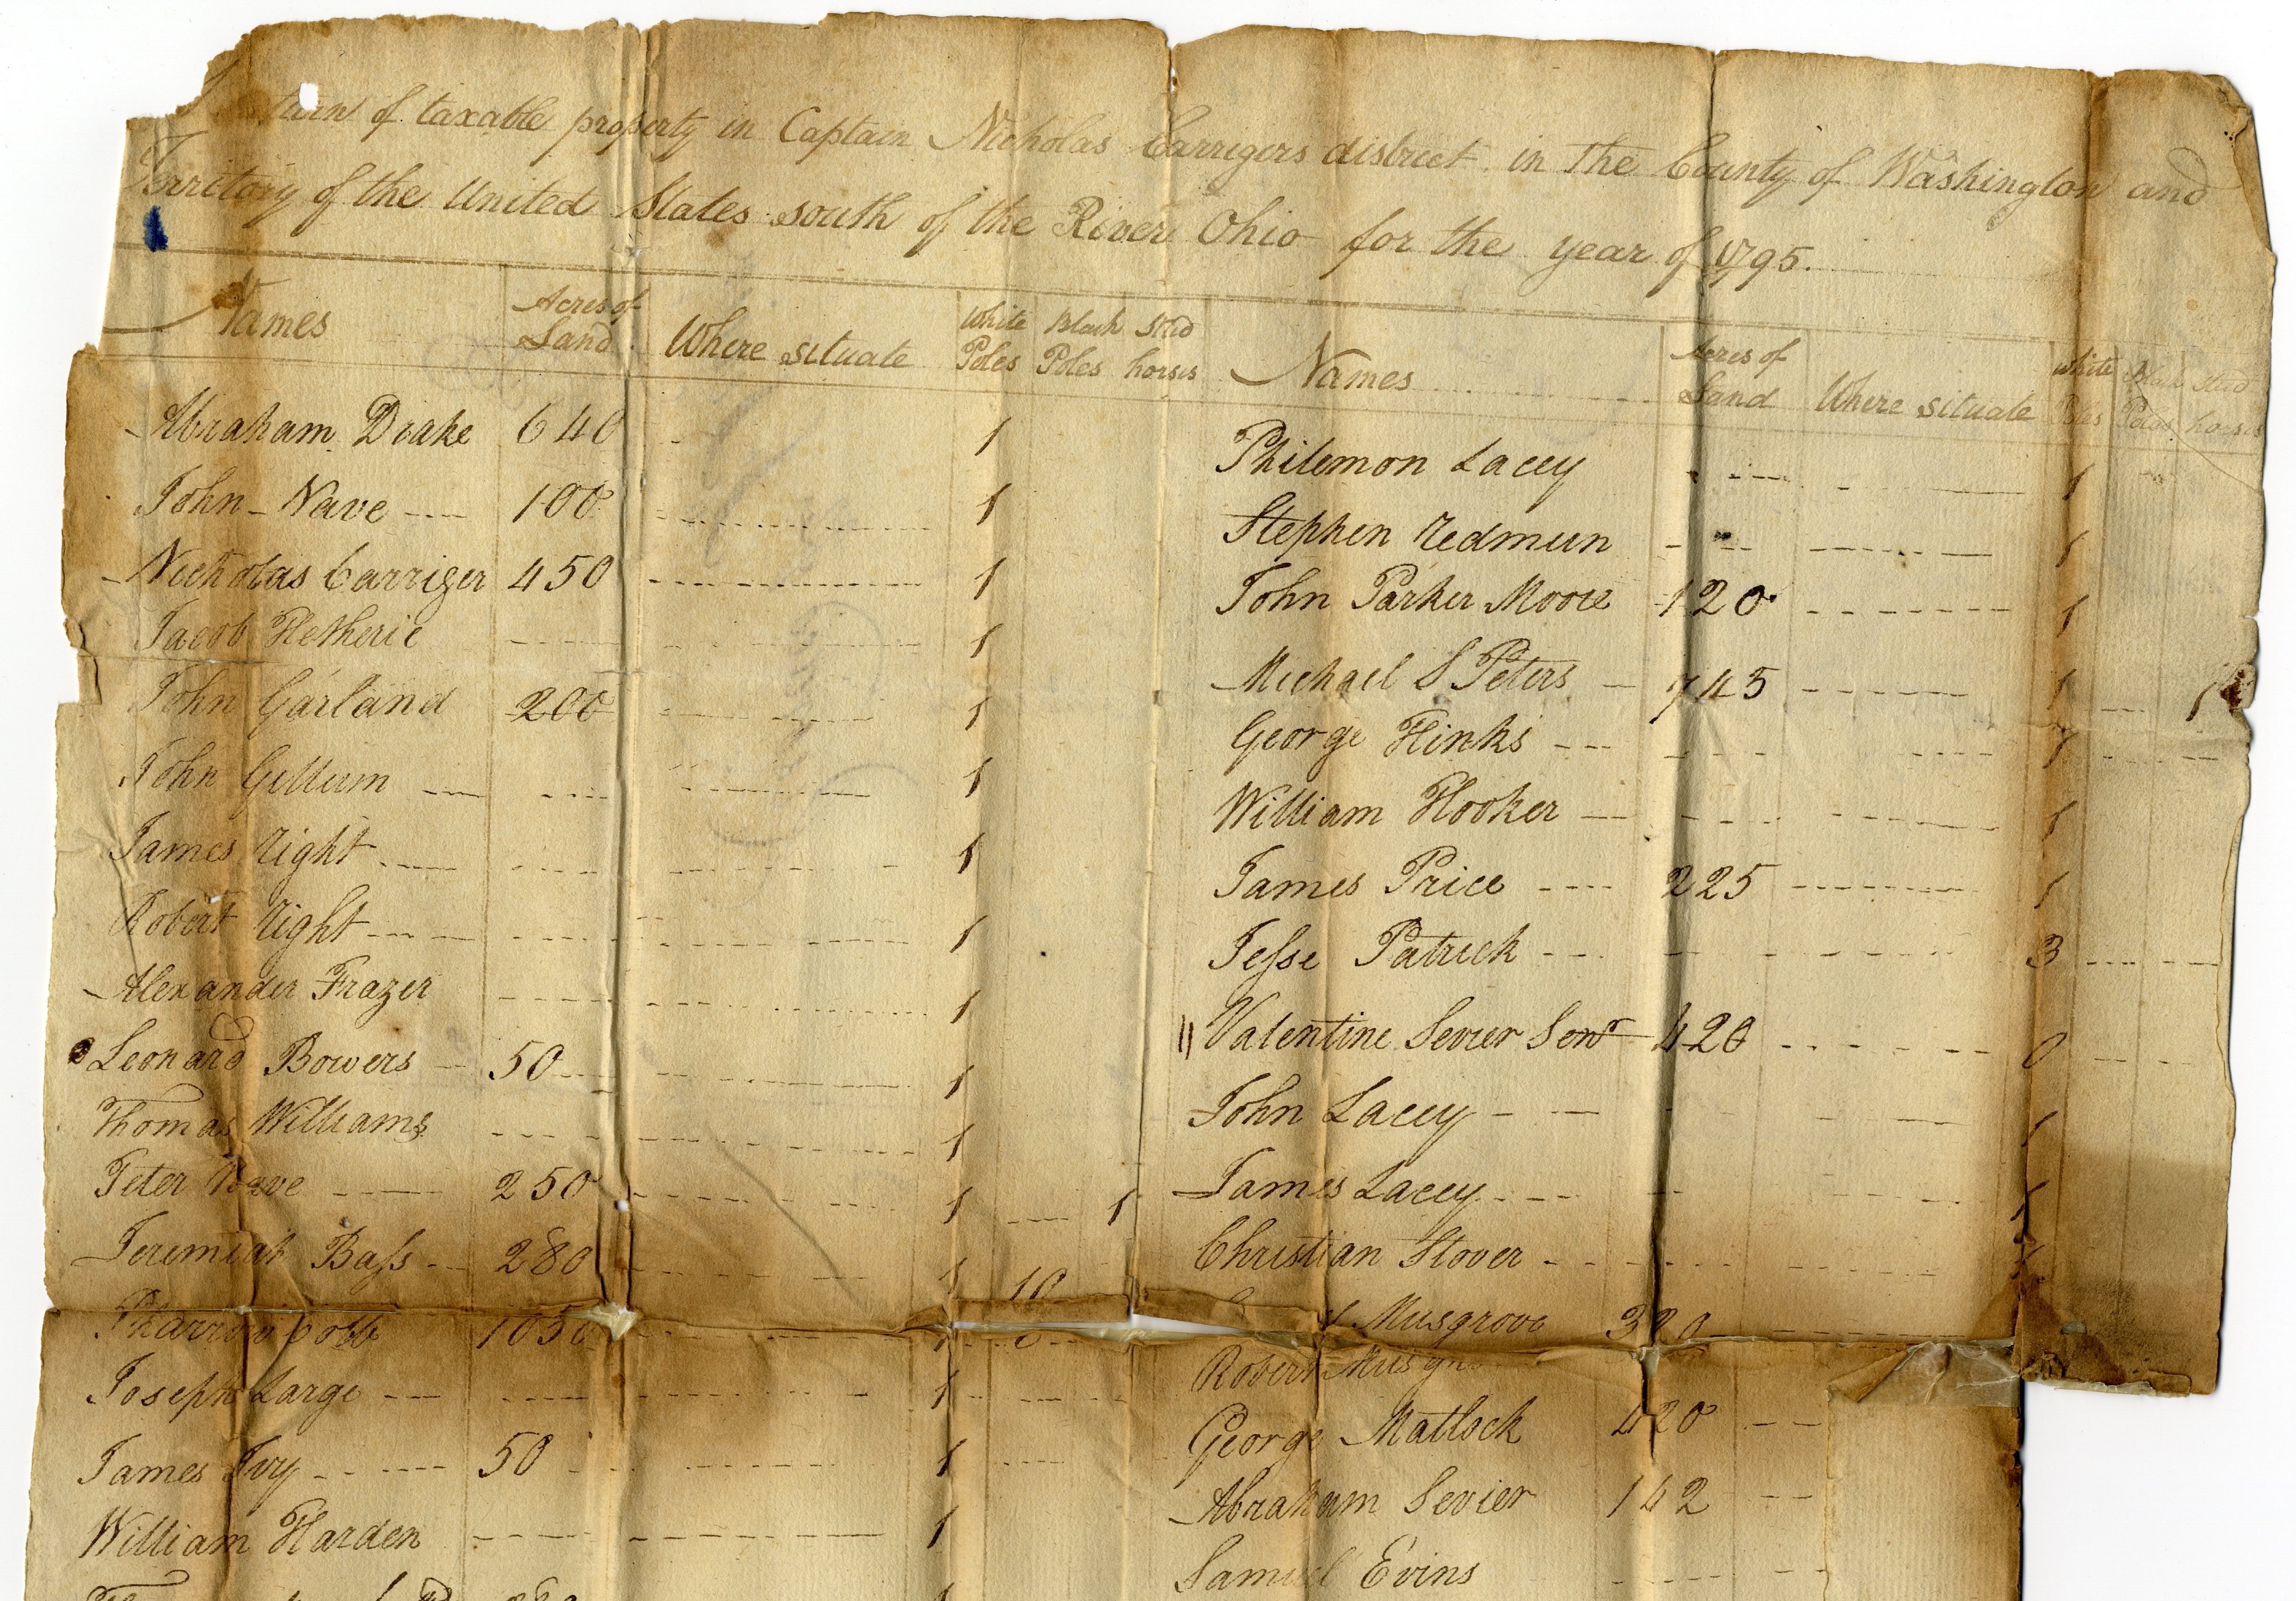 of taxable property in Captain Nicholas Carrigers district in The County of Washington and
Territory of the United States south of the River Ohio for the year of 1795.
Names Acres of Land Where situate White Poles Black Poles Stud horses
Abraham Drake 640 1
John Nave 100 1
Nicholas Carriger 450 1
Jacob Hetherie 1
John Garland 200 1
John Gillum 1
James Right 1
Robert Right 1
Alexander Frazer 1
Leonard Bowers 50 1
Thomas Williams 1
Peter Nave 250 1 1
Jeremiah Bass 280 1 10
Pharrow Cobb 1050 1
Joseph Large 1
James Ivy 50 1
William Harden 1
Names Acres of Land Where situate White Poles Black Poles Stud horses
Philemon Lacey 1
Stephen Redmun 1
John Parker Moore 120 1
Michael S Peters 745 1 1
George Hinks 1
William Hooker 1
James Price 225 1
Jesse Patrick 3
Valentine Sevier Senr 420 0
John Lacey 1
James Lacey 1
Christian Stover 1
Musgrove 320
Robert
George Matlock 420
Abraham Sevier 142
Samuel Evins